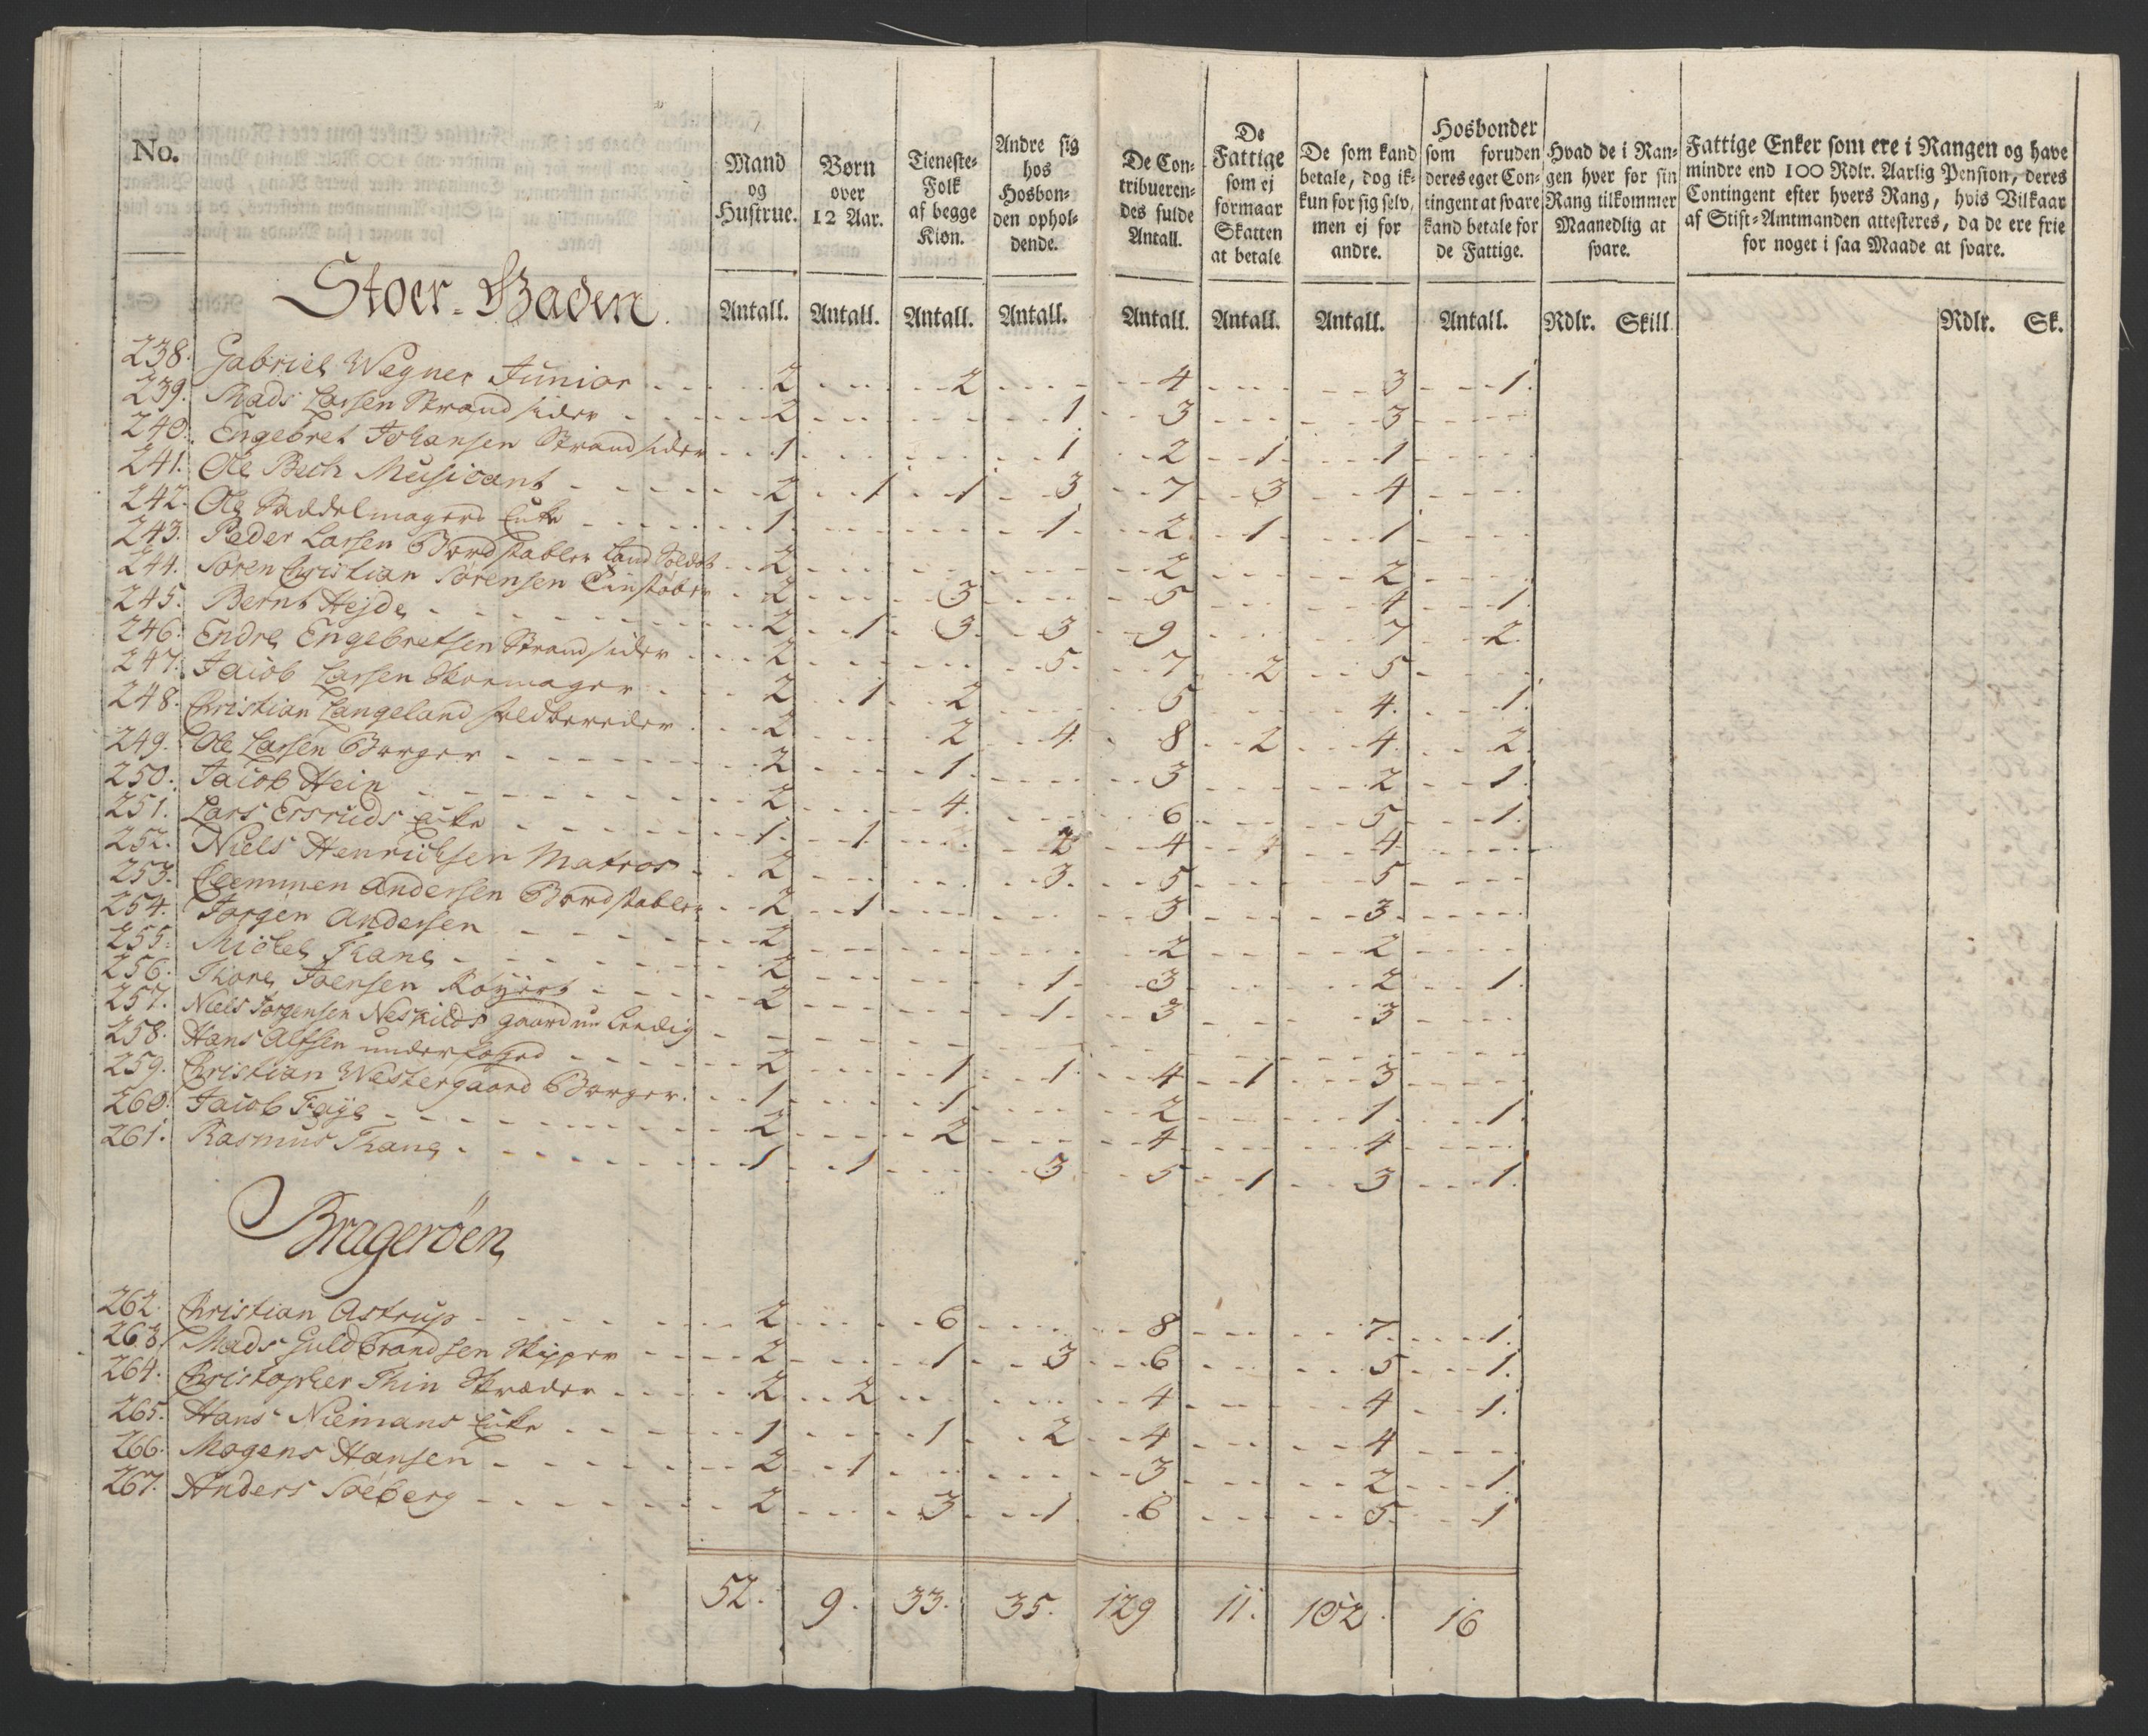 No.
Mand og Hustrue.
Børn over 12 Aar.
Tieneste-Folk af begge Kiøn.
Andre sig hos Hosbon-den ophol-dende.
De Con-tribueren-des fulde Antall.
De Fattige som ej formaar Skatten at betale
De som kand betale, dog ik-kun for sig selv, men ej for andre.
Hosbonder som foruden deres eget Con-tingent at svare kand betale for de Fattige.
Hvad de i Ran-gen hver for sin Rang tilkommer Maanedlig at svare.
Fattige Enker som ere i Rangen og have mindre end 100 Rdlr. Aarlig Pension, deres Contingent efter hvers Rang, hvis Vilkaar af Stift-Amtmanden attesteres, da de ere frie for noget i saa Maade at svare.
Stoer-Gaden.
Antall. Antall. Antall. Antall. Antall. Antall. Antall. Antall. Rdlr. Skill Rdlr. Sk.
238. Gabriel Wegner Junior 2 2 4 3 1.
239. Mads Larsen Strandsider 2 1 3 3
240. Engebret Johansen Strandsider 1 1 2 1 1
241. Ole Bech Musicant 2 1 1 3 7 3 4
242. Ole Saddelmagers Enke 1 1 2 1 1
243. Peder Larsen Bordstabler Land Soldat 2 2 2
244. Søren Christian Sørensen Tinstøber 2 3 5 4 1.
245. Bernt Hejde 2 1 3 3 9 7 2
246. Endre Engebretsen Strandsider 2 5 7 2 5
247. Jacob Larsen Skoemager 2 1 2 5 4 1.
248. Christian Langeland feldbereder 2 2 4 8 2 4 2
249. Ole Larsen Borger 2 1 3 2 1
250. Jacob Hein 2 4 6 5 1.
251. Lars Ersruds Enke 1 1 2 4 4
252. Niels Henrichsen Matros 2 3 5 5
253. Clemmen Andersen Bordstabler 2 1 3 3
254. Jørgen Andersen 2 2 2
255. Michel Thane 2 1 3 2 1
256. Thore Joensen Røyert 2 1 3 3
257. Niels Jørgensen Neskilds gaard nu Leedig
258. Hans Alfsen underfoged 2 1 1 4 1 3
259. Christian Westergaard Borger 1 1 2 1 1
260. Jacob Faye 2 2 4 4
261. Rasmus Thane 1 1 3 5 1 3 1.
Bragerøen
262. Christian Astrup 2 6 8 7 1.
263. Mads Guldbrandsen Skipper 2 1 3 6 5 1.
264. Christopher Thin Skræder 2 2 4 4 1.
265. Hans Niemans Enke 1 1 2 4 4
266. Mogens Hansen 2 1 3 2 1
267. Anders Soeberg 2 3 1 6 5 1
52. 9. 33. 35. 129 11. 102. 16